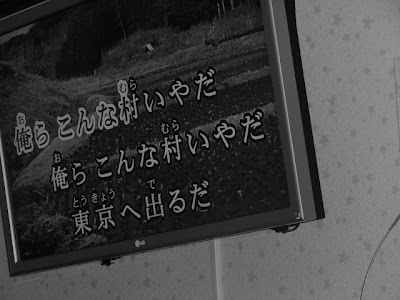 俺ら こんな村いやだ
俺ら こんな村いやだ
東京へ出るだ
LG